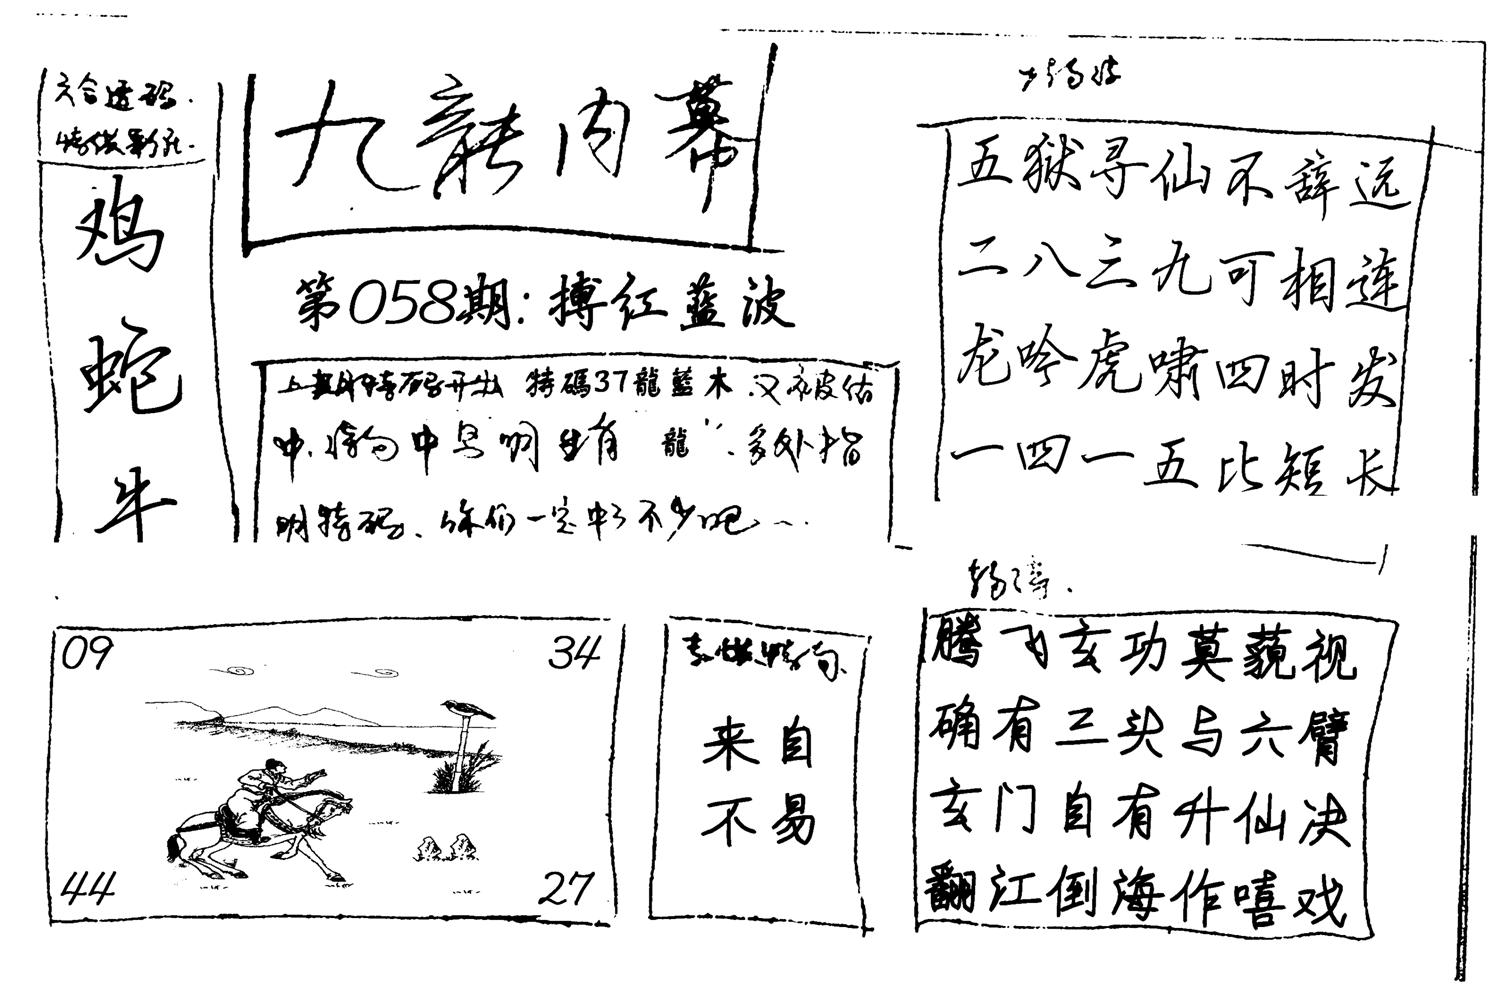 六合透码.
鸡
蛇
牛
九龍内幕
第058期:搏红蓝波
上期特码开出 特碼37龍藍木.又被估
中.特句中早明生肖“龍”.多外指
明特码、你们一定中了不少吧
五狱寻仙不辞远
二八三九可相连
龙吟虎啸四时发
一四一五比短长
09 34
44 27
来自
不易
腾飞玄功莫藐视
确有三头与六臂
玄门自有升仙决
翻江倒海作嘻戏